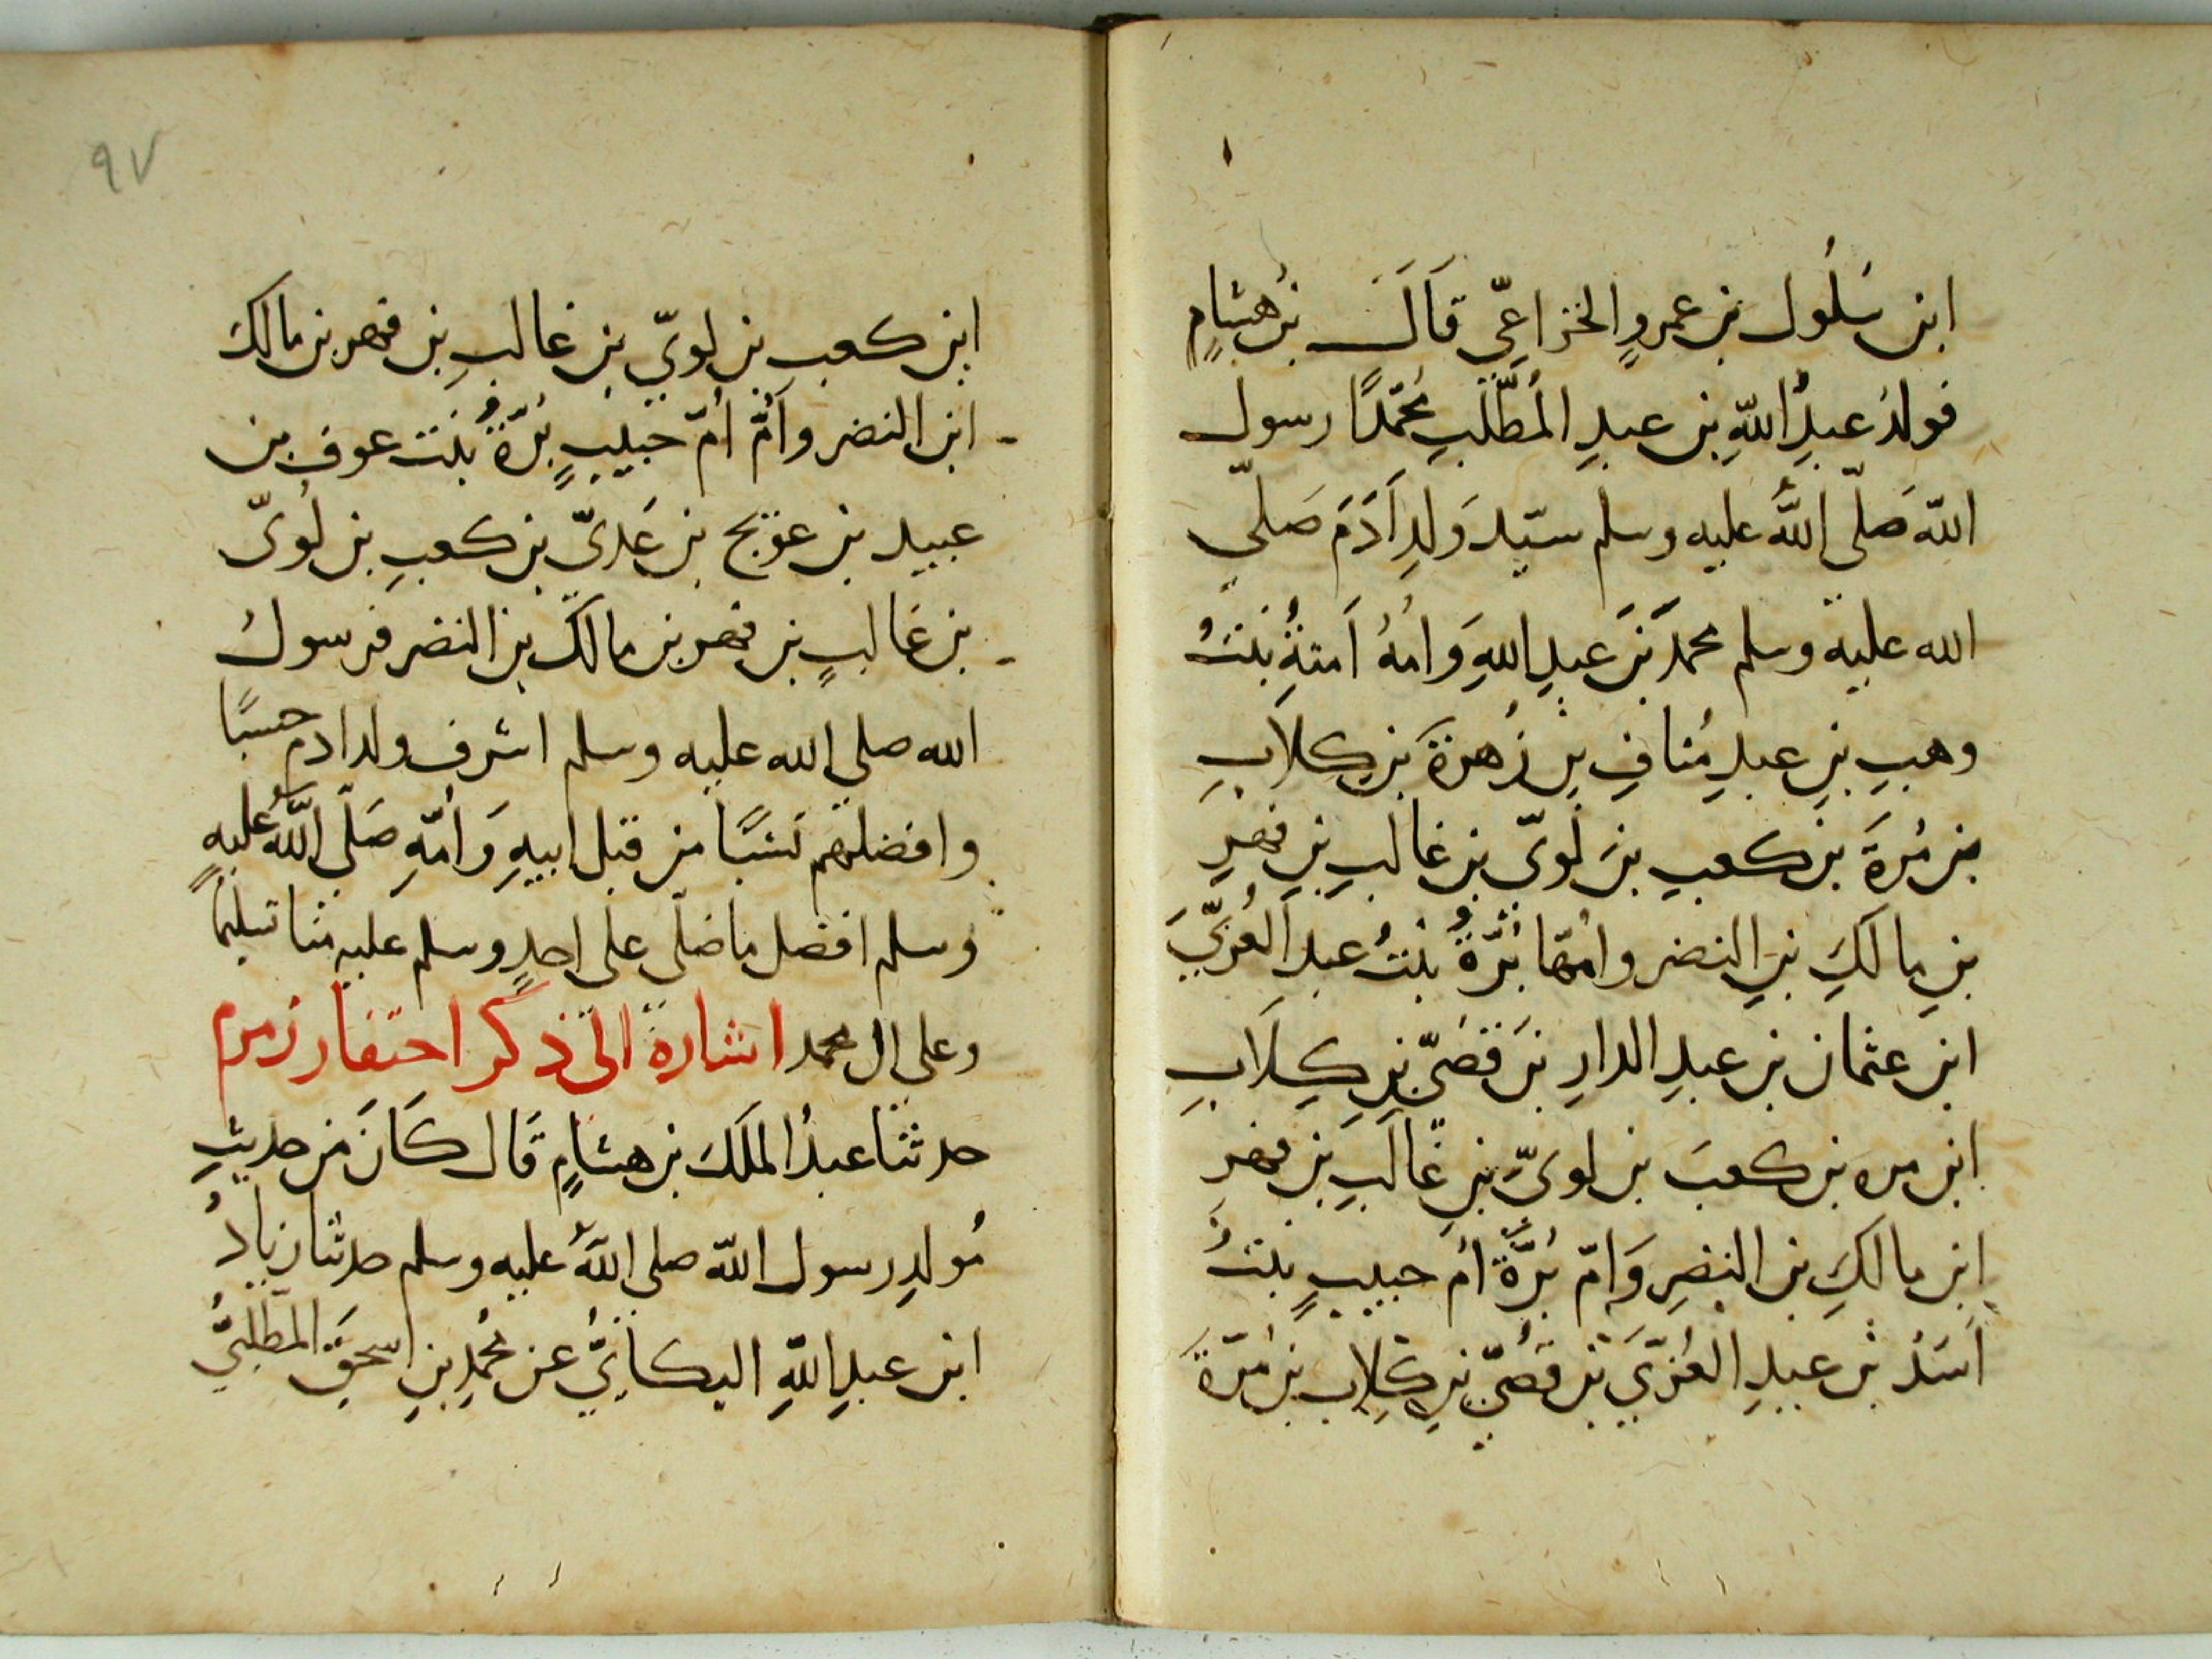 ابن سَلُول بن عمروٍ الخزاعِّي قَالَ بن هشامٍ
فولدُ عبدُ اللّهِ بن عبدِ المُطّلبِ مُحَمّدًا رسول
اللّه صَلّى اللّهُ عليه وسلم سيّد وَلدِ آدَمَ صَلىّ
الله عليه وسلم محمد بنَ عبدِ اللهِ وَامهُ آمنةِ بنتُ
وهبِ بنِ عبدِ مُنافِ بن زُهرةَ بن كلابِ
بن مُرةَ بن كعبِ بن لُويّ بن غالبِ بنِ فهرِ
بنِ مالكِ بنِ النضر وامّها بُرّةُ بنتُ عبد العُزّيَ
ابن عثمان بن عبدِ الدارِ بنَ قصَىّ بنِ كِلَابِ
ابن مره بن كعبَ بن لوىّ بنِ غالبِ بن فهرِ
ابن مالكِ بن النضرِ وَامّ بُرَّةَ امُ حبيبٍ بنتُ
اَسَدُ بن عبدِ العُزّيَ بن قصُىّ بنِ كِلاب بن مُرّةَ
٩٧
ابن كعبِ بن لويّ بن غالبِ بن فهر بن مالكَ
ابن النضر واَمُّ اُمّ حبيبٍ بُرّةُ بنت عوف بن
عبيد بن عويج بن عَديّ بن كعبِ بن لُوىّ
بن غالبٍ بن فهر بن مالك بن النضر فرسولُ
الله صلى الله عليه وسلم اشرف ولد ادم حسبًا
وافضلهم نسَبًا من قبل ابيهِ وَامّهِ صَلّى اللّهُ عليهِ
وسلم افضل ما صَلّى على احدٍ وسلم عليه منا تسليمًا
وعلى ال محمد اشارة الى ذكر احتفار زمزم
حدثنا عبدُ الملَكَ بن هشامٍ قَال كَانَ من حديثِ
مُولدِ رسول اللّه صلى اللّهُ عليه وسلم حدثنا زيادُ
ابن عبدِ اللّهِ البكايَيُّ عن مُحمدِ بنِ اسحقَ المطّلبيُّ